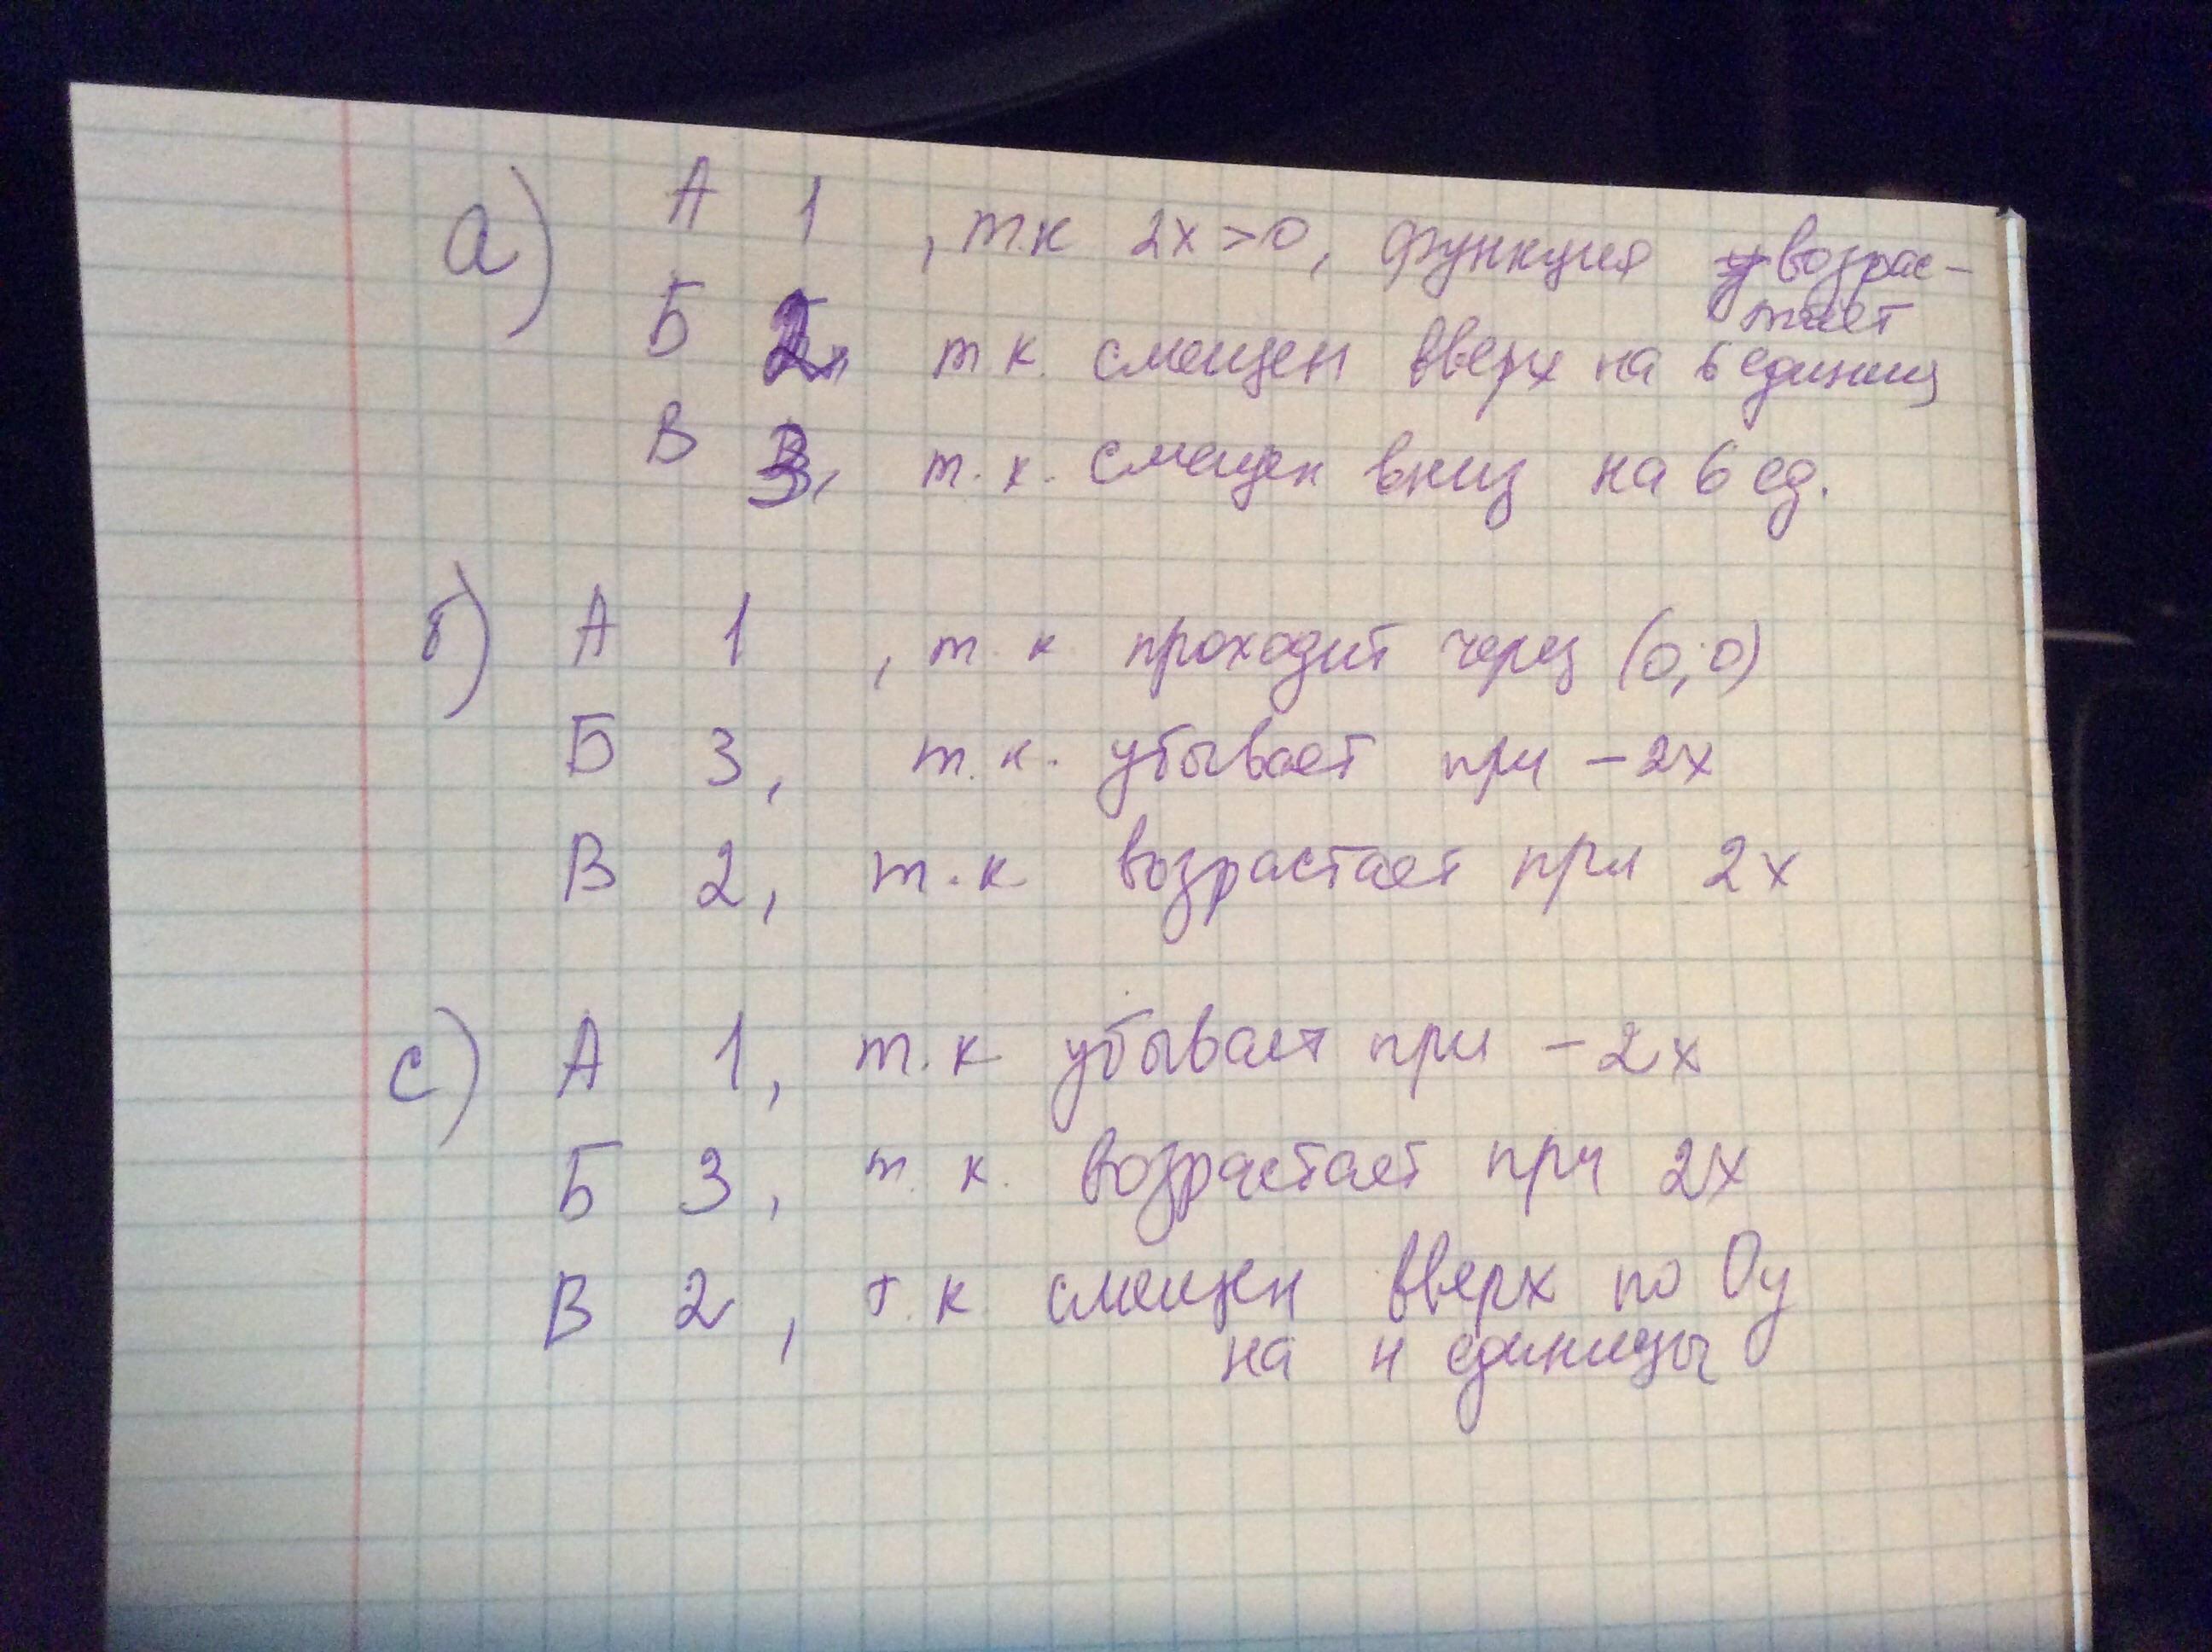 а) А 1 , т.к 2х>0, функция возрас-
тает
Б 2, т к. смещен вверх на 6 единиц
В 3, т.к. смещен вниз на 6 ед.
б) А 1 , т.к проходит через (0;0)
Б 3, т.к. убывает при -2х
В 2, т.к возрастает при 2х
с) А 1, т.к убывает при -2х
Б 3, т.к. возрастает при 2х
В 2, т.к смещен вверх по Оу
на 4 единицы